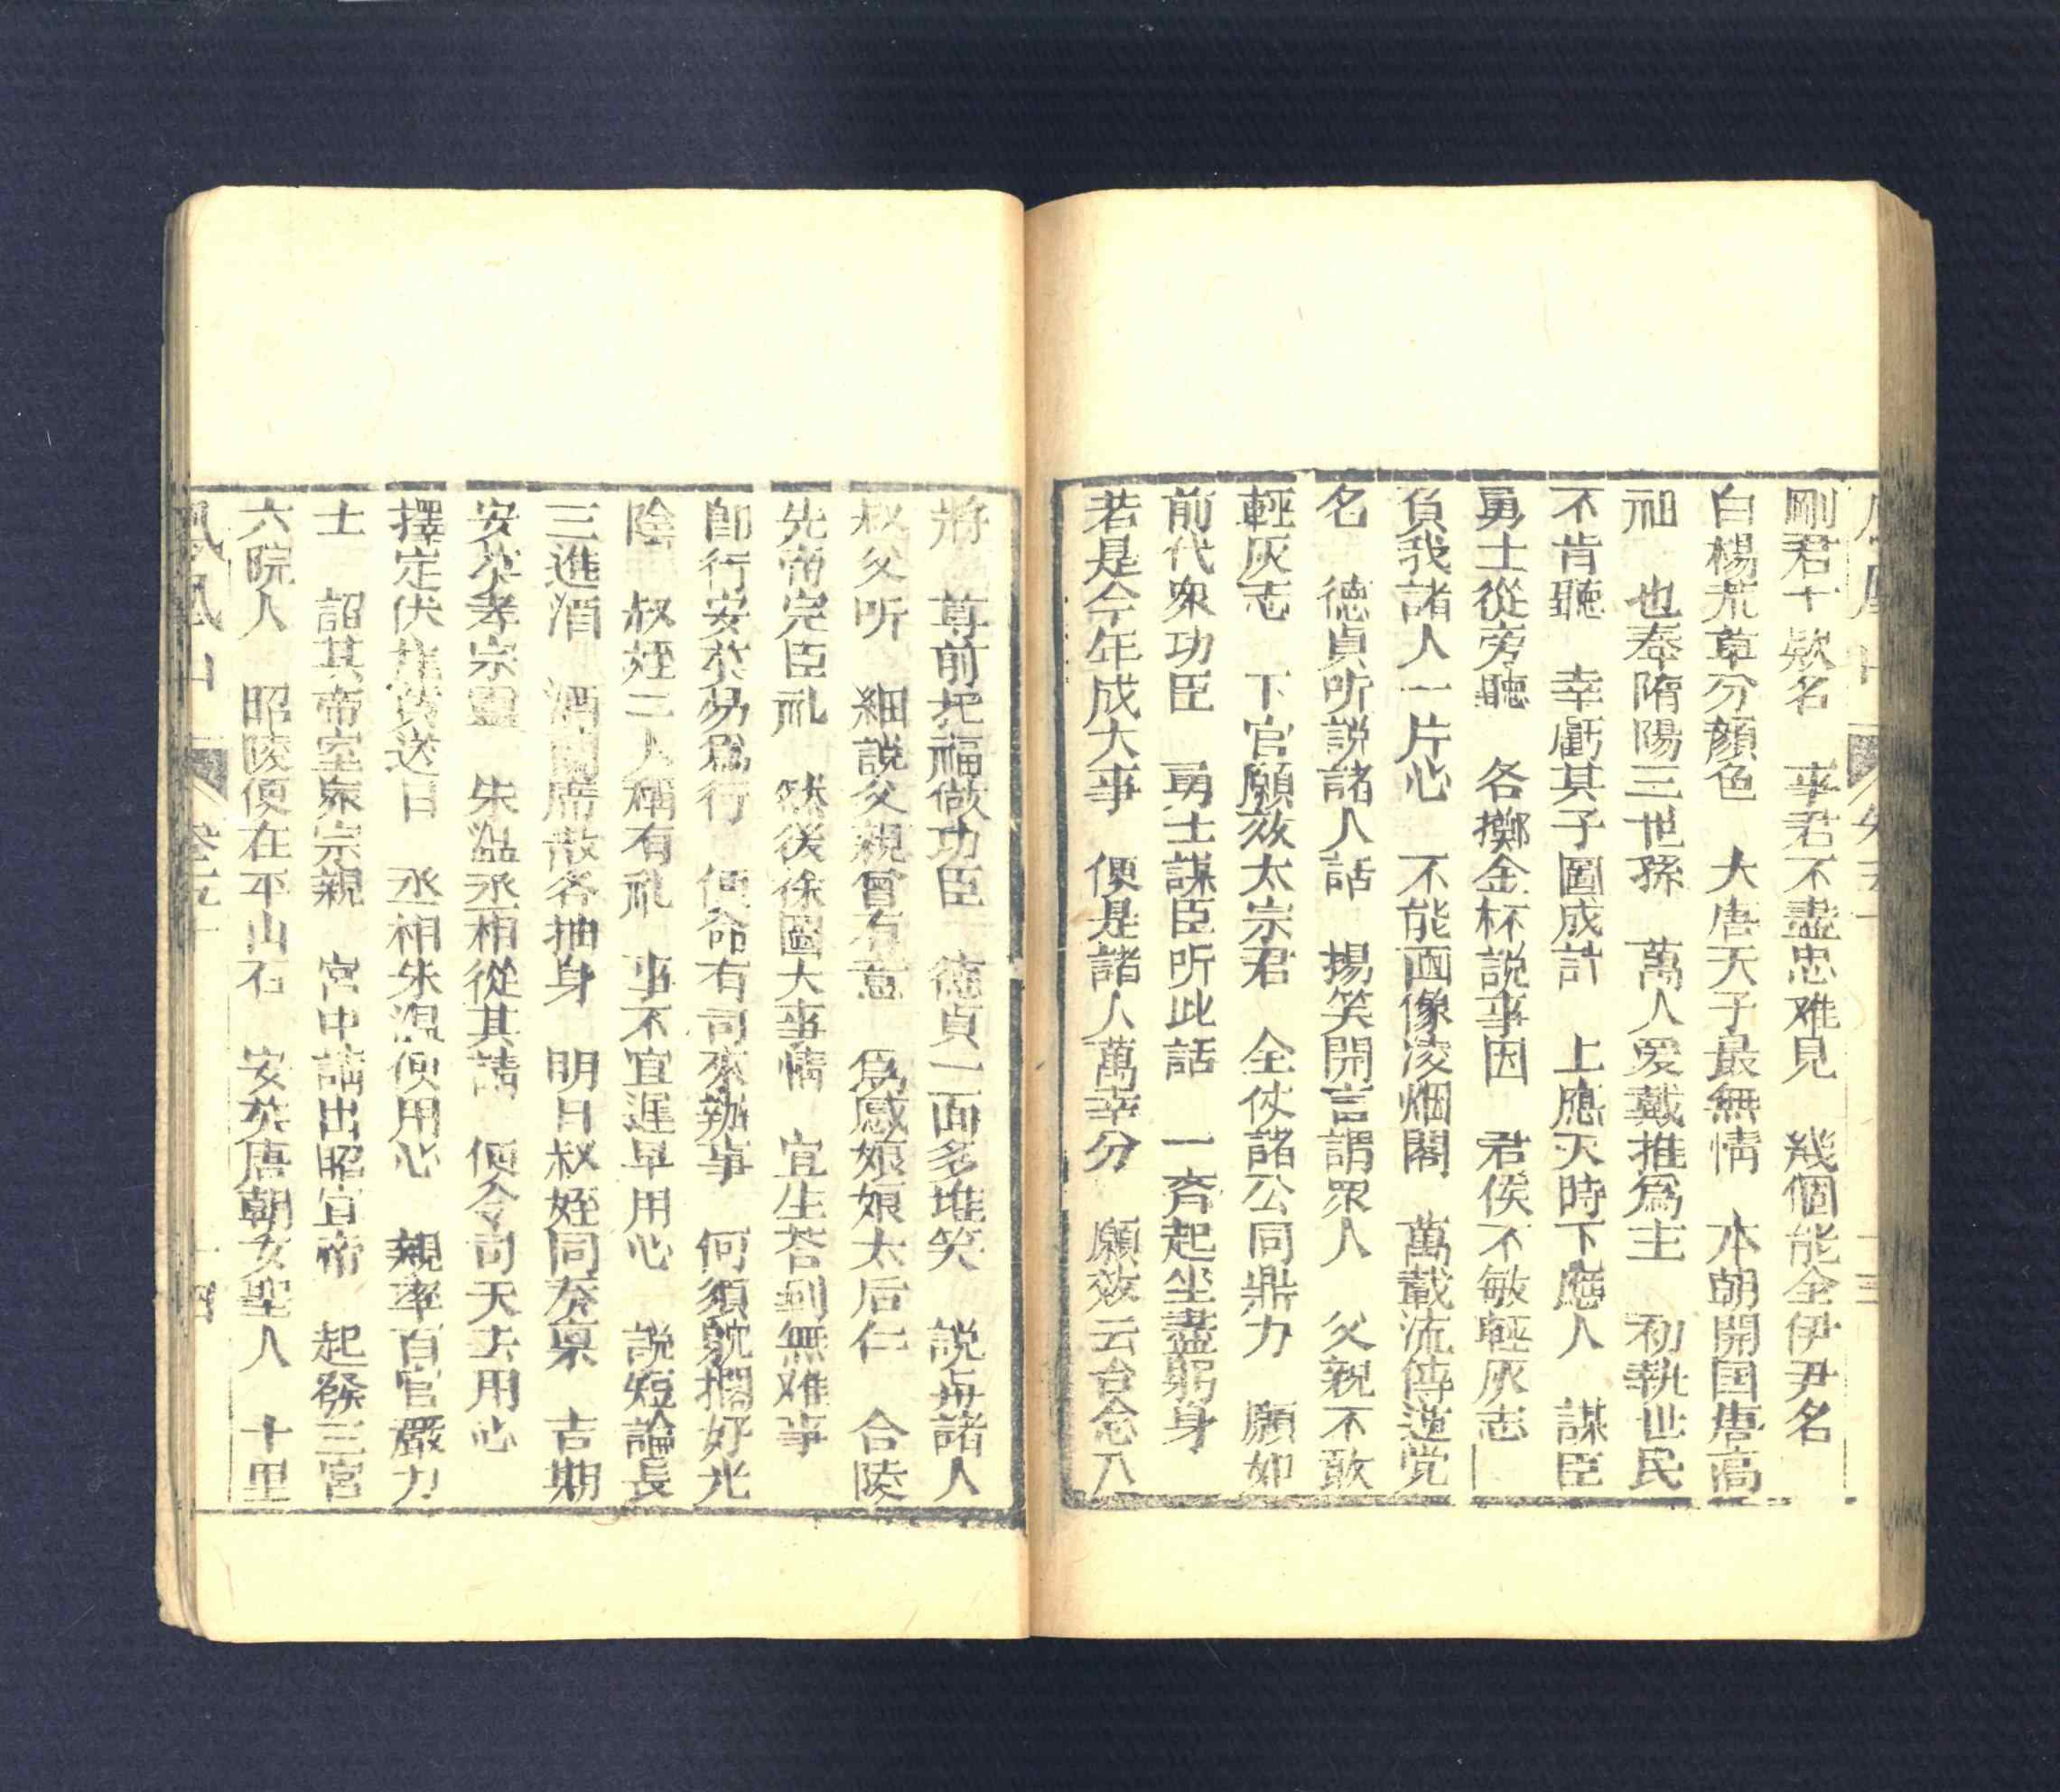 剛君十欵名　事君不盡忠难見　幾個能全伊尹名
白楊荒草分顏色　大唐天子最無情　本朝開国唐高
祖　也奉隋陽三世孫　萬人爱戴推為主　初執世民
不肯聽　幸虧其子圖成計　上應天時下應人　謀臣
勇士從旁聽　各擲金杯説事因　君侯不敏輕灰志
負我諸人一片心　不能画像凌烟閣　萬載流傳逆党
名　德貞听説諸人話　揚笑開言謂眾人　父親不敢
輕灰志　下官願效太宗君　全仗諸公同鼎力　願如
前代衆功臣　勇士謀臣听此話　一齊起坐盡躬身
若是今年成大事　便是諸人萬幸分　願效云台念八
將　尊前托福做功臣　德貞一面多堆笑　説與諸人
叔父听　細説父親曾有意　為感娘娘太后仁　合陵
先帝完臣礼　然後徐圖大事情　宜生荅到無难事
即行安葬易為行　便命有司來辦事　何須躭擱好光
陰　叔姪三人稱有礼　事不宜遲早用心　説短論長
三進酒　酒闌席散各抽身　明日叔姪同奏稟　吉期
安葬孝宗靈　朱温丞相從其請　便令司天去用心
擇定伏 送日　丞相朱温便用心　親率百官嚴力
士　詔其帝室衆宗親　宮中請出昭宣帝　起發三宮
六院人　昭陵便在平山石　安葬唐朝女聖人　十里
鳳凰山　卷五十　十四